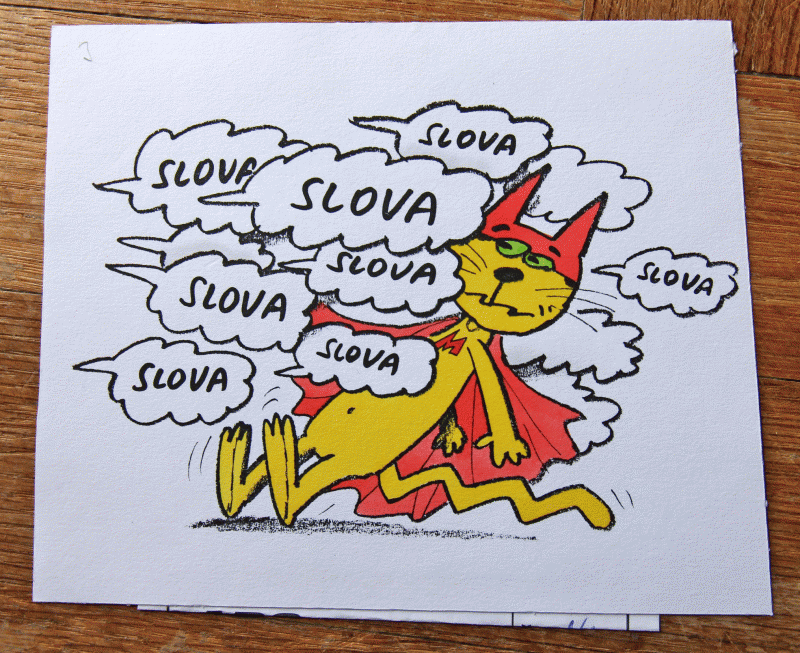 SLOVA
SLOVA
SLOVA
SLOVA
SLOVA
SLOVA
SLOVA
SLOVA
M